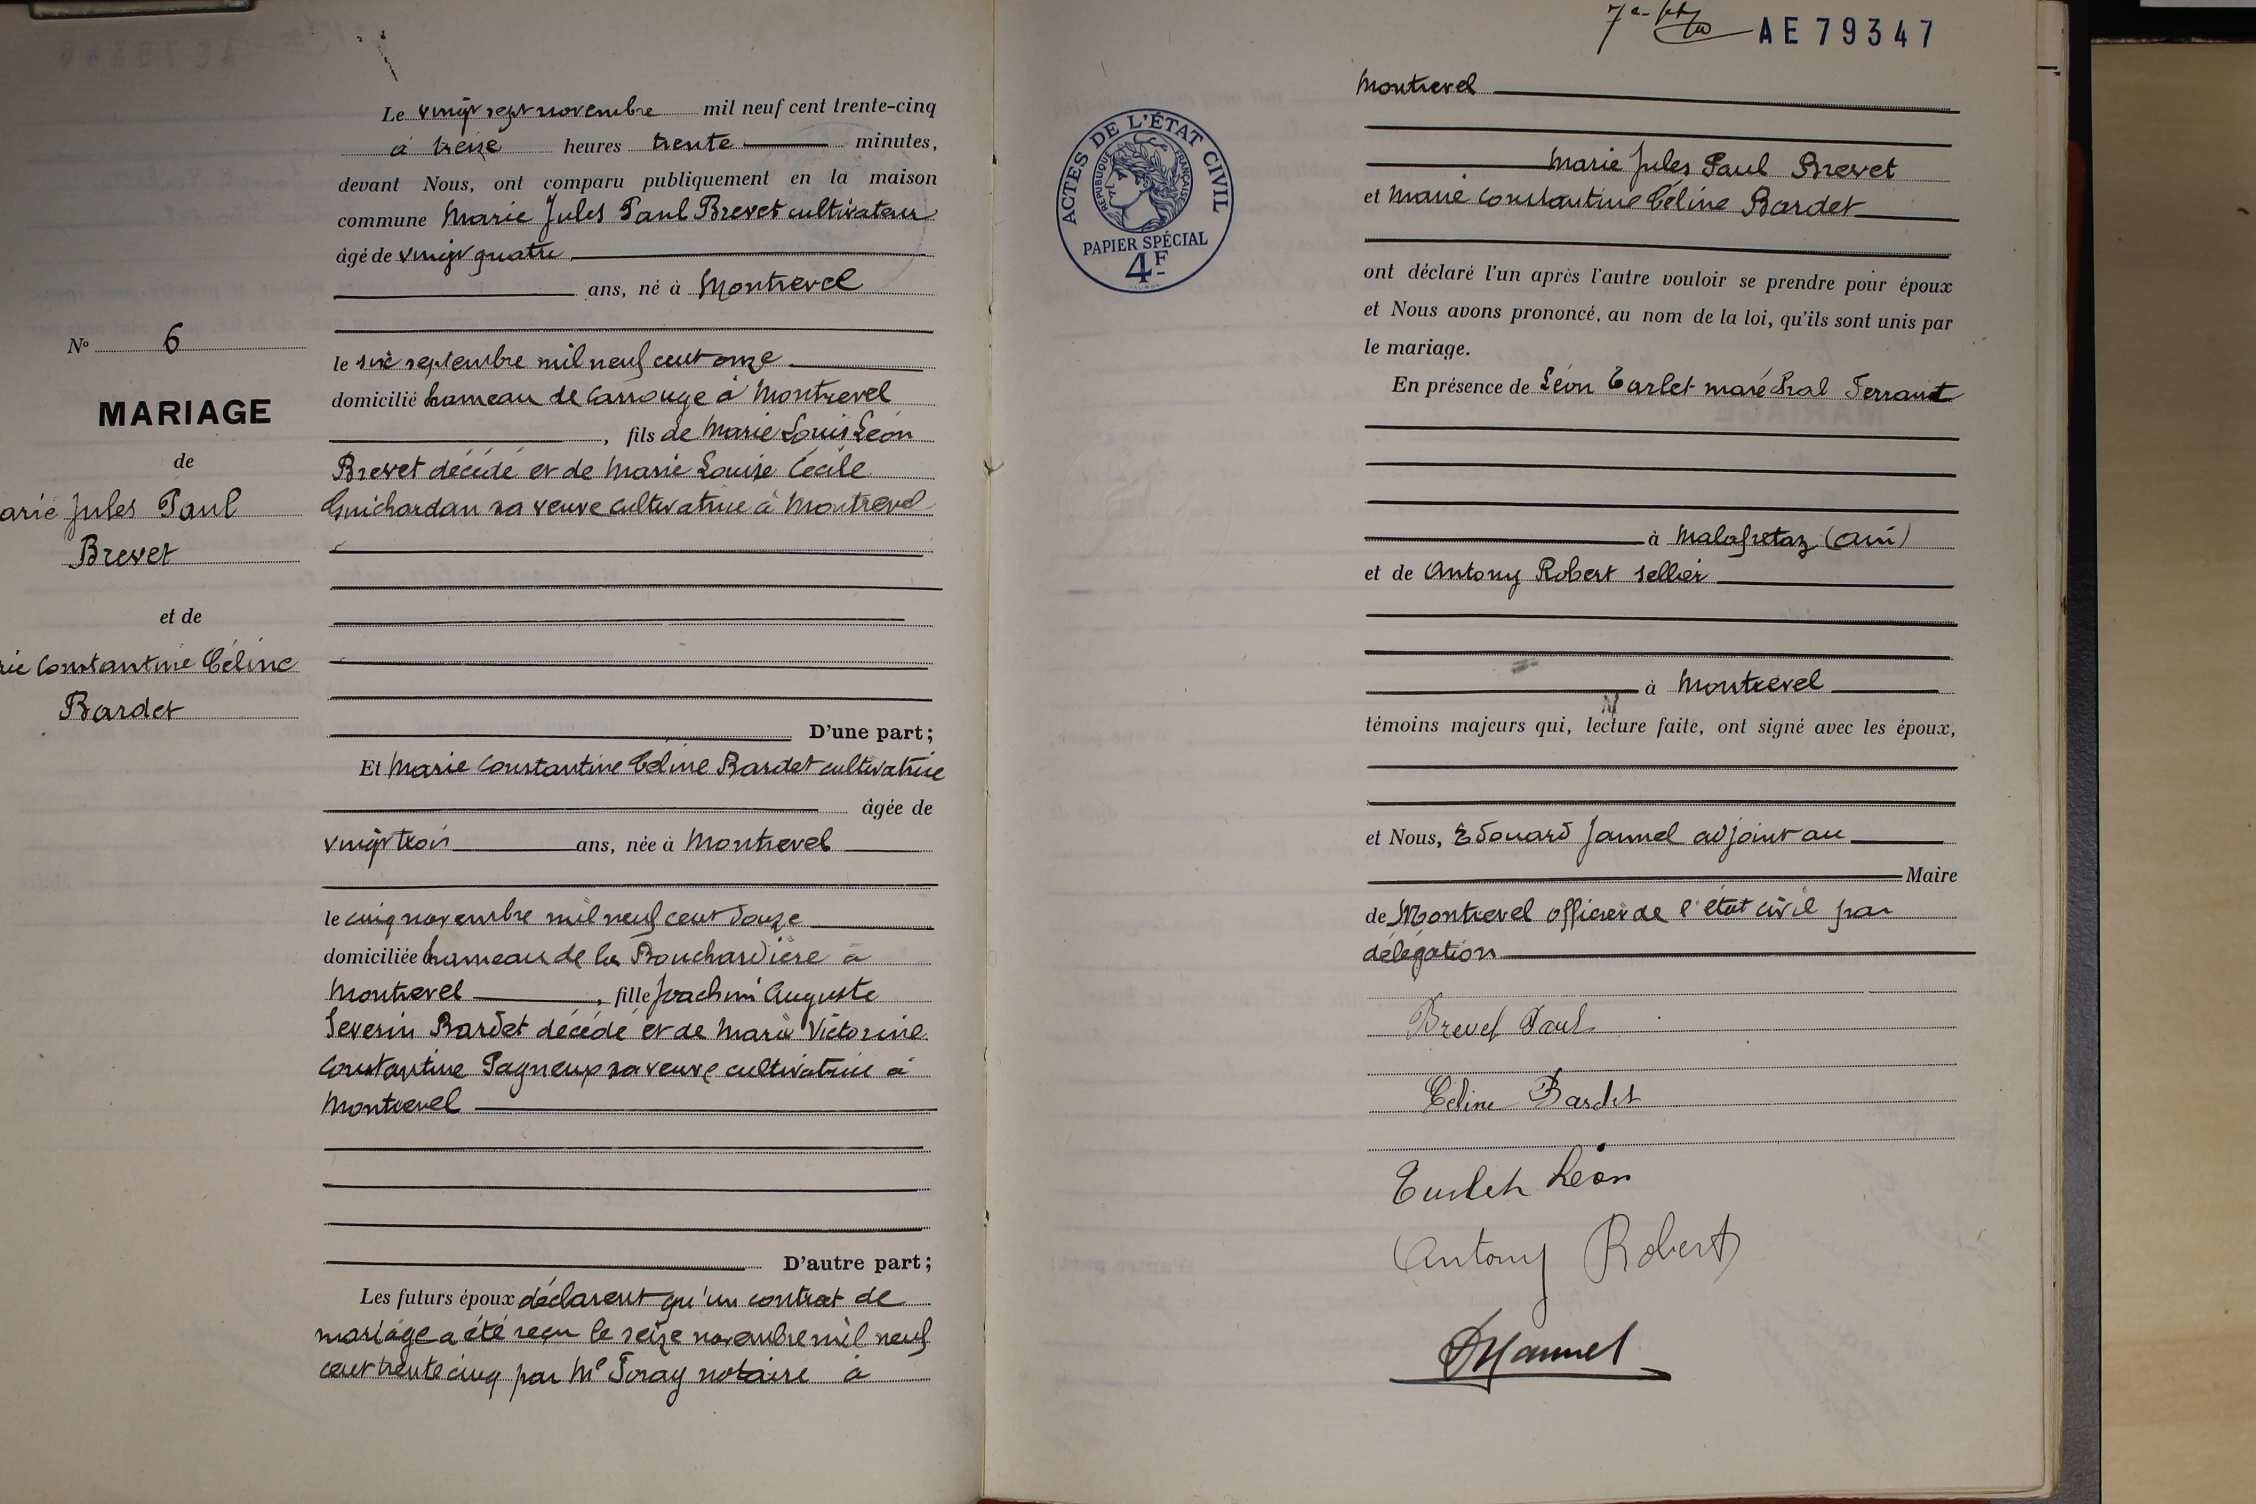 N° 6
MARIAGE
de
arie Jules Paul
Brevet
et de
rie Constantine Céline
Bardet
Le vingt sept novembre mil neuf cent trente-cinq
à treize heures trente minutes,
devant Nous, ont comparu publiquement en la maison
commune Marie Jules Paul Brevet cultivateur
âgé de vingt quatre
ans, né à Montrevel
le six septembre mil neuf cent onze
domicilié hameau de Carrouge à Montrevel
, fils de Marie Louis Léon
Brevet décédé et de Marie Louise Cécile
Guichardan sa veuve cultivatrice à Montrevel
D'une part;
Et Marie Constantine Céline Bardet cultivatrice
âgée de
vingt trois ans, née à Montrevel
le cinq novembre mil neuf cent douze
domiciliée hameau de la Bouchardière à
Montrevel , fille Joachim Auguste
Severin Bardet décédé et de Marie Victorine
Constantine Pagneux sa veuve cultivatrice à
Montrevel
D'autre part;
Les futurs époux déclarent qu'un contrat de
mariage a été reçu le seize novembre mil neuf
cent trente cinq par Me Foray notaire à
AE 79347
Montrevel
Marie Jules Paul Brevet
et Marie Constantine Céline Bardet
ACTES DE L'ÉTAT CIVIL
RÉPUBLIQUE FRANÇAISE
PAPIER SPÉCIAL
4F
ont déclaré l'un après l'autre vouloir se prendre pour époux
et Nous avons prononcé, au nom de la loi, qu'ils sont unis par
le mariage.
En présence de Léon Carlet maréchal Ferrant
à Malafretaz (Ain)
et de Antony Robert sellier
à Montrevel
témoins majeurs qui, lecture faite, ont signé avec les époux,
et Nous, Edouard Jannel adjoint au
Maire
de Montrevel officier de l'état civil par
délégation
Brevet Paul
Céline Bardet
Léon
Antony Robert